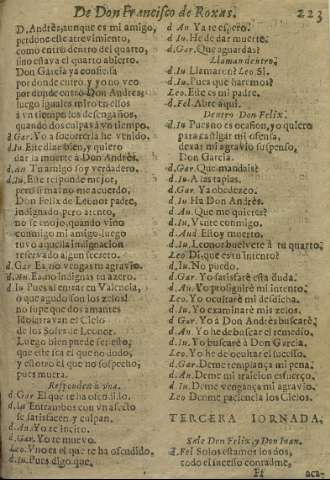 De Don Francisco de Roxas. 223
D. Andrès, aunque es mi amigo,
perdone este atrevimiento,
como entrò dentro del quarto,
sino estava el quarto abierto.
Don Garcia ya confiessa
por donde entrò, y yo no veo
por donde entrò Don Andres;
luego iguales miro en ellos
à vn tiempo los desengaños,
quando dos culpas à vn tiempo.
d. Gar. Yo a socorrerla he venido.
d. Iu. Este dize bien, y quiero
dar la muerte à Don Andrès.
d. An Tu amigo soy verdadero.
d. Iu. Este responde mejor,
pero si mal no me acuerdo,
Don Felix de Leonor padre,
indignado, pero atento,
no se enojò, quando vino
conmigo mi amigo, luego
tuvo aquella indignacion
reservado algun secreto.
d. Gar Ea, no vengas tu agravio.
d. An. Ea, no indignas tu azero.
d. Iu Pues al entrar en Valencia,
o que agudo son los zelos!
no supe que dos amantes
idolatravan el Cielo
de los Soles de Leonor.
Luego bien puede ser esto,
que este sea el que no dudo,
y essotro el que no sospecho,
pues muera.
Responden à vna.
d. Gar. El que te ha ofendido.
d. Iu Entrambos con vn afecto
se satisfacen, y culpan.
d. An. Yo te incito.
d. Gar. Yo te muevo.
Leo. Vno es el que te ha ofendido.
d. Iu. Pues digo que,
d. An Ya te espero.
d. Iu. He de dar muerte.
d. Gar. Que aguardas?
Llaman dentro.
d. Iu Llamaron? Leo. Sì.
d. Iu. Pues què haremos?
Leo. Este es mi padre.
d. Fel. Abre aqui.
Dentro Don Felix.
d. Iu Pues no es ocasion, yo quiero
para castigar mi ofensa,
dexar mi agravio suspenso,
Don Garcia.
d. Gar Que mandais?
d. Iu. A las tapias.
d. Gar. Ya obedezco.
d. Iu Ha Don Andrès.
d. An. Que me quieres?
d. Iu. Vente conmigo.
d. And. Estoy muerto.
d. Iu. Leonor buelvete à tu quarto.
Leo. Di, que es tu intento?
d. Iu. No puedo.
d. Gar. Yo satisfarè esta duda.
d. An. Yo prosiguirè mi intento.
Leo. Yo ocultarè mi desdicha.
d. Iu. Yo examinarè mis zelos.
d. Gar. Yo à Don Andrès buscarè.
d. An. Yo he de buscar el remedio.
d. Iu. Yo buscarè à Don Garcia.
Leo. Yo he de ocultar el sucesso.
d. Gar. Deme templança mi pena.
d. An. Deme mi traicion esfuerço.
d. Iu. Deme vengança mi agravio.
Leo Denme paciencia los Cielos.
TERCERA IORNADA.
Sale Don Felix, y Don Iuan.
d. Fel Solos estamos los dos,
todo el sucesso contadme,
Ff aca-